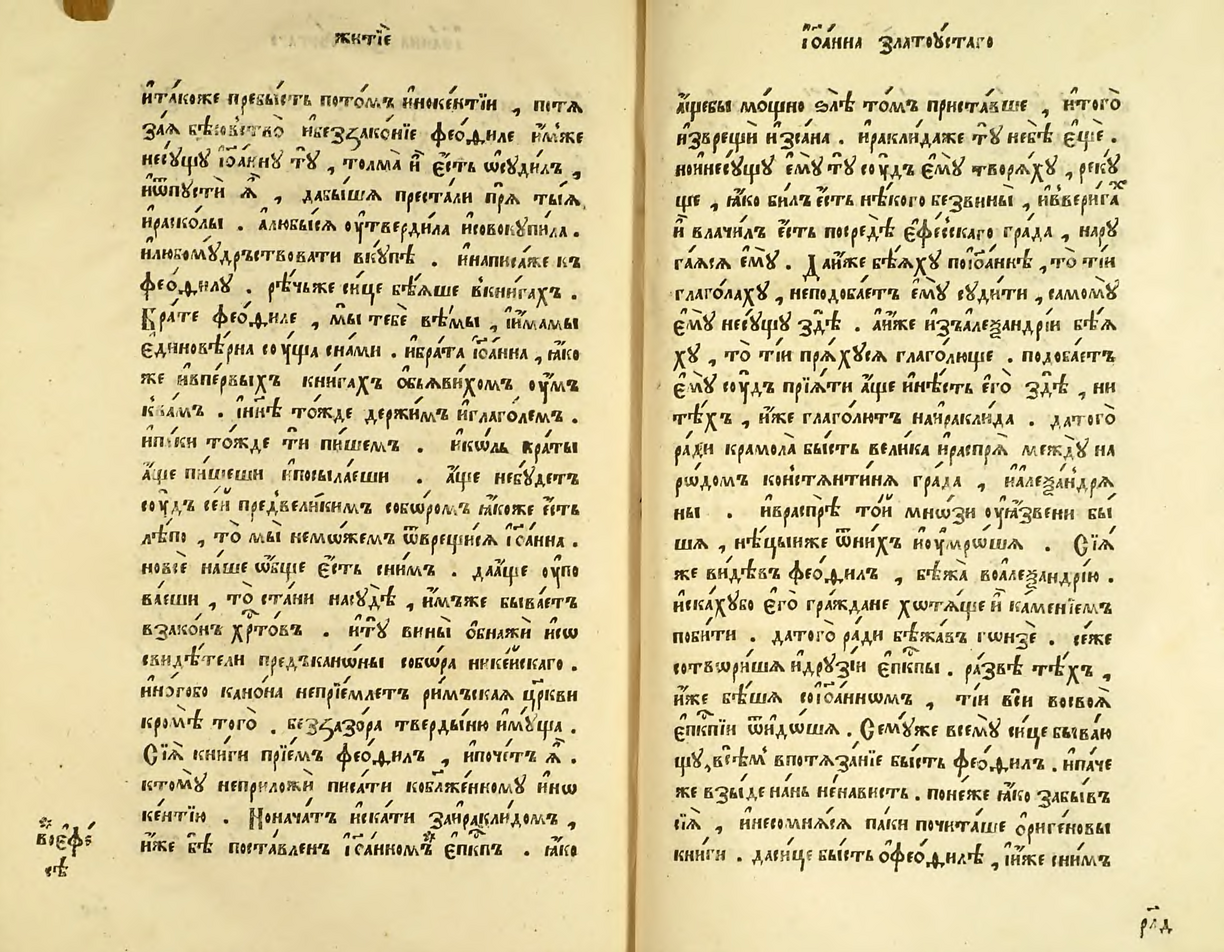 житїѐ
и҆та́коже пребы́сть пото́мъ и҆нокентїи , потѧ
за́ѧ бѣ́ковство̀ и҆без̾зако́нїе ѳео́ѳиле и҆́мже
несу́щꙋ і҆ѡа́ннꙋ тꙋ̀ , толма̀ и҆̀ є҆́сть ѡ҆сꙋди́лъ ,
и҆ѿпꙋстѝ ѧ҆̀ , дабы́шѧ преста́ли прѧ̀ ты́ѧ
и҆раско́лы . а҆любы́сѧ ᲂу҆тверди́ла и҆совокꙋпи́ла .
и҆любомꙋ́дръствовати вкꙋ́пѣ . и҆написа́же къ
ѳео́ѳилꙋ . рѣ́чьже си́це бѣ́ѧше в̾кни́гахъ .
Бра́те ѳео́ѳиле , мы̀ тебѐ вѣ́мы , и҆и҆́мамы
є҆диновѣ́рна сꙋ́ща сна́ми . и҆бра́та і҆ѡа́нна , ꙗ҆́ко
же и҆впе́рвыхъ кни́гахъ ѡ҆б̾ѧви́хомъ ᲂу҆́мъ
к̾ва́мъ . і҆нн҃ѣ то́жде держи́мъ и҆глаго́лемъ .
и҆па́ки то́жде тѝ пи́шемъ . и҆ко́ль кра́ты
а҆́ще пи́шеши и҆посыла́еши . а҆́ще небꙋ́детъ
сꙋ́дъ се́й предвели́кимъ собо́ромъ ꙗ҆́коже є҆́сть
лѣ́по , то̀ мы̀ немо́жемъ ѿврещи́сѧ і҆ѡа́нна .
но́всѐ на́ше ѻ҆́бще є҆́сть сни́мъ . даа҆́ще ᲂу҆по
ва́еши , то̀ ста́ни насꙋ́дѣ , и҆́мъже быва́етъ
взако́нъ хрⷭ҇то́въ . и҆тꙋ̀ вины̀ ѡ҆бнажѝ и҆сѡ
свидѣ́тели пред̾кано́ны собо́ра нике́йскаго .
и҆но́гобо кано́на непрїе́млетъ ри́мъскаѧ цр҃кви
кромѣ̀ того̀ . без̾зазо́ра тверды́ню и҆мꙋ́ща .
Сїѧ̀ кни́ги прїе́мъ ѳео́ѳилъ , и҆почо́тъ ѧ҆̀ .
ктомꙋ̀ неприложѝ писа́ти кобл҃же́нномꙋ и҆нѡ
ке́нтїю . Нонача́тъ и҆ска́ти заи҆ракли́домъ ,
и҆́же бѣ̀ поста́вленъ і҆ѡа́нномъ* є҆пкⷭ҇пъ . ꙗ҆́ко
* воє҆фе́
сѣ
і҆ѡа́нна златоꙋ́стаго
а҆́щебы мо́щно ѕлѣ̀ то́мъ приста́вше , и҆того̀
и҆зврещѝ и҆зса́на . и҆ракли́даже тꙋ̀ небѣ̀ є҆щѐ .
нои҆несꙋ́щꙋ є҆мꙋ̀ тꙋ̀ сꙋ́дъ є҆мꙋ̀ творѧ́хꙋ , рекꙋ́
ще , ꙗ҆́ко би́лъ є҆́сть нѣ́кого безвины̀ , и҆вверига́хъ
и҆̀ влачи́лъ є҆́сть посредѣ̀ є҆фе́сскаго гра́да , нарꙋ
га́ѧсѧ є҆мꙋ̀ . Даи҆́же бѣ́ѧхꙋ поі҆ѡа́ннѣ , то̀ ті́и
глаго́лахꙋ , неподоба́етъ є҆мꙋ̀ сꙋди́ти , самомꙋ̀
є҆мꙋ̀ несꙋ́щꙋ здѣ̀ . аи҆́же изъалеѯандрі́и бѣ́ѧ
хꙋ , то̀ ті́и прѧ́хꙋсѧ глаго́люще . подоба́етъ
є҆мꙋ̀ сꙋ́дъ прїѧ́ти а҆́ще и҆нѣ́сть є҆го̀ здѣ̀ , ни
тѣ́хъ , и҆́же глаго́лютъ наи҆ракли́да . датого̀
ра́ди крамола̀ бы́сть вели́ка и҆распрѧ̀ междꙋ̀ на
ро́домъ константи́нѧ гра́да , и҆а҆леѯа́ндрѧ
ны . и҆враспрѣ̀ то́й мно́зи ᲂу҆ѧ́звени бы́
шѧ , нѣ́цыиже ѿни́хъ и҆ᲂу҆мро́шѧ . Сїѧ̀
же ви́дѣвъ ѳео́ѳилъ , бѣжа̀ воалеѯандрі́ю .
и҆ска́хꙋбо є҆го̀ гра́ждане хотѧ́ще и҆̀ ка́менїемъ
поби́ти . датого̀ ра́ди бѣжа́въ гонзѐ . се́же
сотвори́шѧ и҆дрꙋзі́и є҆пкⷭ҇пы . ра́звѣ тѣ́хъ ,
и҆́же бѣ́шѧ соі҆ѡа́нномъ , ті́и всѝ восвоѧ̀
є҆пкⷭ҇пїи ѿидо́шѧ . Семꙋ́же всемꙋ̀ си́це быва́ю
щꙋ, всѣ́м̾ впотѧза́нїе бы́сть ѳео́ѳилъ . и҆па́че
же взы́де на́нь нена́висть . поне́же ꙗ҆́ко забы́въ
сїѧ̀ , и҆несомнѧ́сѧ па́ки почита́ше ѻ҆риге́новы
кни́ги . даси́це бы́сть ѻ҆ѳео́ѳилѣ , и҆и҆́же сни́мъ
рл҃д